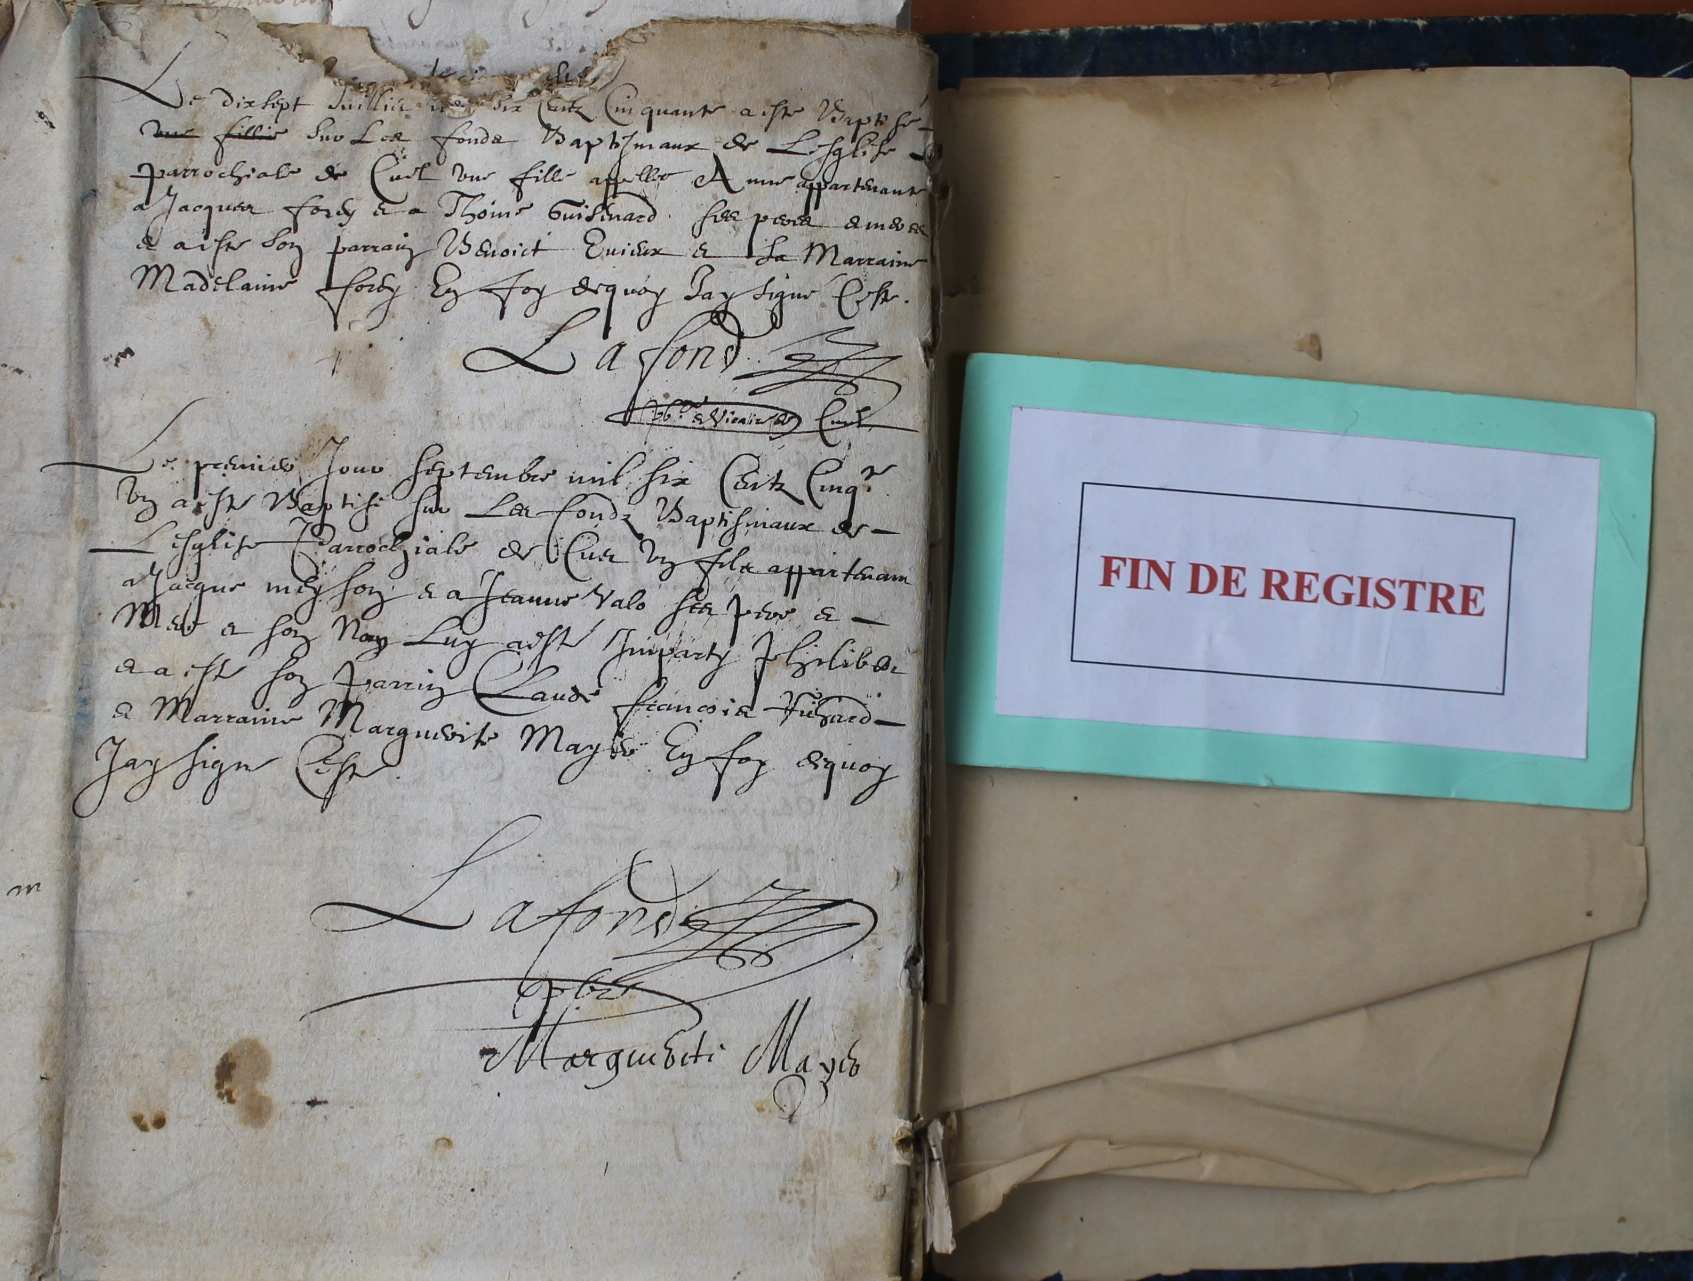 Le dixsept Juillet mil six Centz Cinquante a este Baptisé
une fille sur Les fondz Baptismaux de Lesglise
parrochiale de Cuet une fille appellee Anne appartenante
a Jacques forey et a Thoine Guisnard ses pere et mere
et a este son parrain Benoict et sa Marraine
Madelaine forey En foy dequoy Jay signé Ceste.
Lafond
pbre et Vicaire de Cuet
Le premier Jour septembre mil six Centz Cinqte
un a este Baptisé sur Les fondz Baptismaux de
Lesglise Parrochiale de Cuet un filz appartenant
a Jacque meyson et a Jeanne Valo ses pere et
Mere et son Nom Luy a esté Imparty philibert
et a este son parrin Claude francois
et Marraine Marguerite Mayer En foy dequoy
Jay signe Ceste
Lafond
pbre
Margueriti Mayer
m
FIN DE REGISTRE